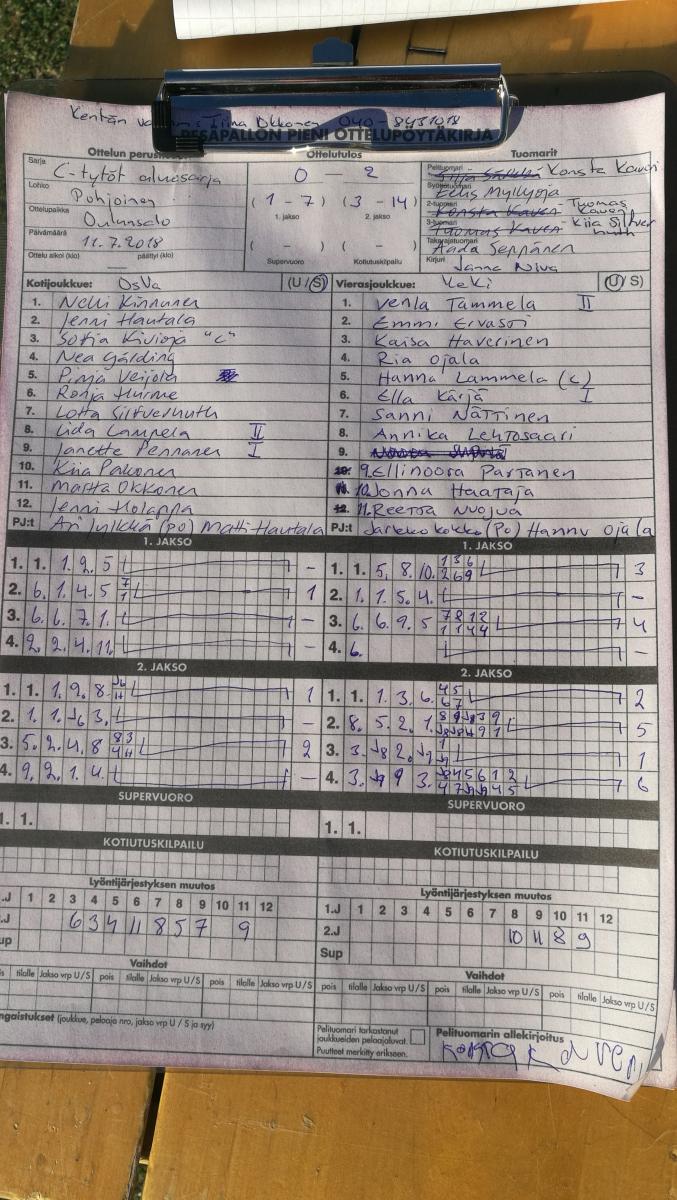 Kentän Tiina Okkonen 040-8431018
PESÄPALLON PIENI OTTELUPÖYTÄKIRJA
Ottelun
Ottelutulos
Tuomarit
Sarja C-tytöt aluesarja
Lohko Pohjoinen
Ottelupaikka Oulunsalo
Päivämäärä 11.7.2018
Ottelu alkoi (klo) päättyi (klo)
0 – 2
(1 – 7) (3 – 14)
1. jakso 2. jakso
( – ) ( – )
Supervuoro Kotiutuskilpailu
Pelituomari Konsta Kaveri
Syöttötuomari Eelis Myllyoja
2-tuomari Konsta Kaveri Tuomas Kaveri
3-tuomari Tuomas Kaveri - Kiia Silfver
Takarajatuomari Aada Seppänen
Kirjuri Janna Niva
Kotijoukkue: OsVa (U/S)
1. Nelli Kinnunen
2. Jenni Hautala
3. Sofia Kivioja "C"
4. Nea Gårding
5. Pinja Veijola
6. Ronja Hurme
7. Lotta Silfverhuth
8. Iida Lampela II
9. Janette Pennanen I
10. Kiia Pakonen
11. Martta Okkonen
12. Jenni Holappa
PJ:t Ari Jylkkä (PO) Matti Hautala
Vierasjoukkue: YeKi (U/S)
1. Venla Tammela II
2. Emmi Ervasti
3. Kaisa Haverinen
4. Ria Ojala
5. Hanna Lammela (C)
6. Ella Kärjä I
7. Sanni Nättinen
8. Annika Lehtosaari
9.
10. 9. Ellinoora Partanen
11. 10. Jonna Haataja
12. 11. Reetta Nuojua
PJ:t Jarkko Kokko (PO) Hannu Ojala
1. JAKSO
1. 1. 1. 2. 5 –
2. 6. 1. 4. 5 7 1 1
3. 6. 6. 7. 1. –
4. 2. 2. 4. 11. –
1. JAKSO
1. 1. 5. 8. 10. 1 3 6 2 6 9 3
2. 1. 1. 5. 4. –
3. 6. 6. 9. 5 7 8 12 1 1 4 4 4
4. 6. –
2. JAKSO
1. 1. 1. 9. 8. 1
2. 1. 1. 3. –
3. 5. 2. 4. 8 8 3 4 11 2
4. 9. 2. 1. 4. –
2. JAKSO
1. 1. 1. 3. 6. 4 5 6 7 2
2. 8. 5. 2. 1. 5
3. 3. 2. 1
4. 3. 9 3. 6
SUPERVUORO
1. 1.
SUPERVUORO
1. 1.
KOTIUTUSKILPAILU
KOTIUTUSKILPAILU
Lyöntijärjestyksen muutos
.J 1 2 3 4 5 6 7 8 9 10 11 12
.J 6 3 4 11 8 5 7 9
up
Lyöntijärjestyksen muutos
1.J 1 2 3 4 5 6 7 8 9 10 11 12
2.J 10 11 8 9
Sup
Vaihdot
is tilalle Jakso vrp U/S pois tilalle Jakso vrp U/S pois tilalle Jakso vrp U/S
Vaihdot
pois tilalle Jakso vrp U/S pois tilalle Jakso vrp U/S pois tilalle Jakso vrp U/S
ngaistukset (joukkue, pelaaja nro, jakso vrp U / S ja syy)
Pelituomari tarkastanut joukkueiden pelaajaluvat.
Puutteet merkitty erikseen.
Pelituomarin allekirjoitus